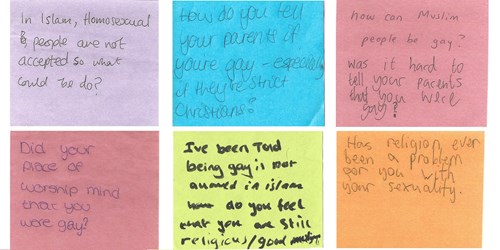 In Islam, Homosexual
people are not
accepted so what
could he do?
How do you tell
your parents if
you're gay - especially
if they're strict
Christians?
how can Muslim
people be gay?
was it hard to
tell your parents
that you were
gay?
Did your
place of
worship mind
that you
were gay?
I've been Told
being gay is not
allowed in islam
how do you feel
that you are still
religious/good muslim
Has religion ever
been a problem
for you with
your sexuality.